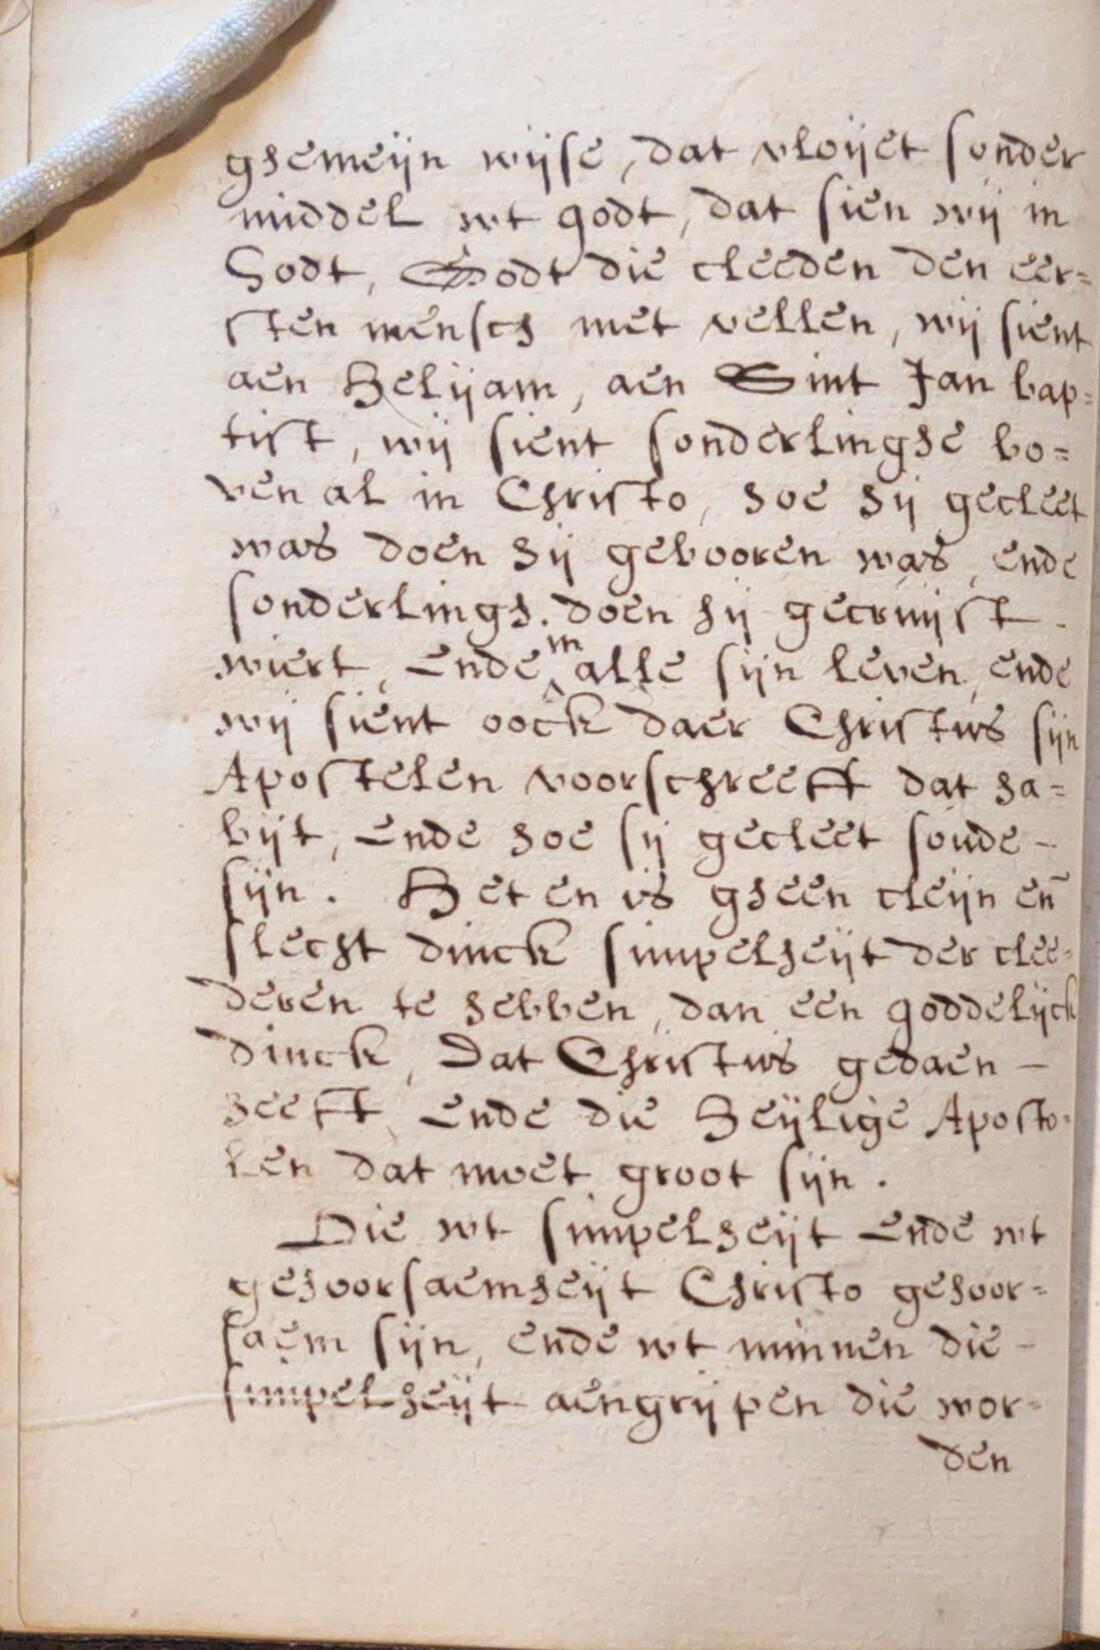 ghemeijn wijse, dat vloijet sonder
middel wt godt, dat sien wij in
Godt, Godt die cleeden den eer=
sten mensch met vellen, wij sient
aen Helijam, aen Sint Jan bap=
tist, wij sient sonderlinghe bo=
ven al in Christo, hoe hij gecleet
was doen hij gebooren was, ende
sonderlingh. doen hij gecruijst -
wiert, ende in alle sijn leven, ende
wij sient oock daer Christus sijn
Apostelen voorschreeff dat ha=
bijt, ende hoe sij gecleet soude -
sijn. Het en is gheen cleijn en̄
slecht dinck simpelheijt der clee=
deren te hebben, dan een goddelijck
dinck, Dat Christus gedaen -
heeft, ende die Heijlige Aposto=
len dat moet groot sijn.
Die wt simpelheijt ende wt
gehoorsaemheijt Christo gehoor=
saem sijn, ende wt minnen die -
simpelheijt aengrijpen die wor=
den